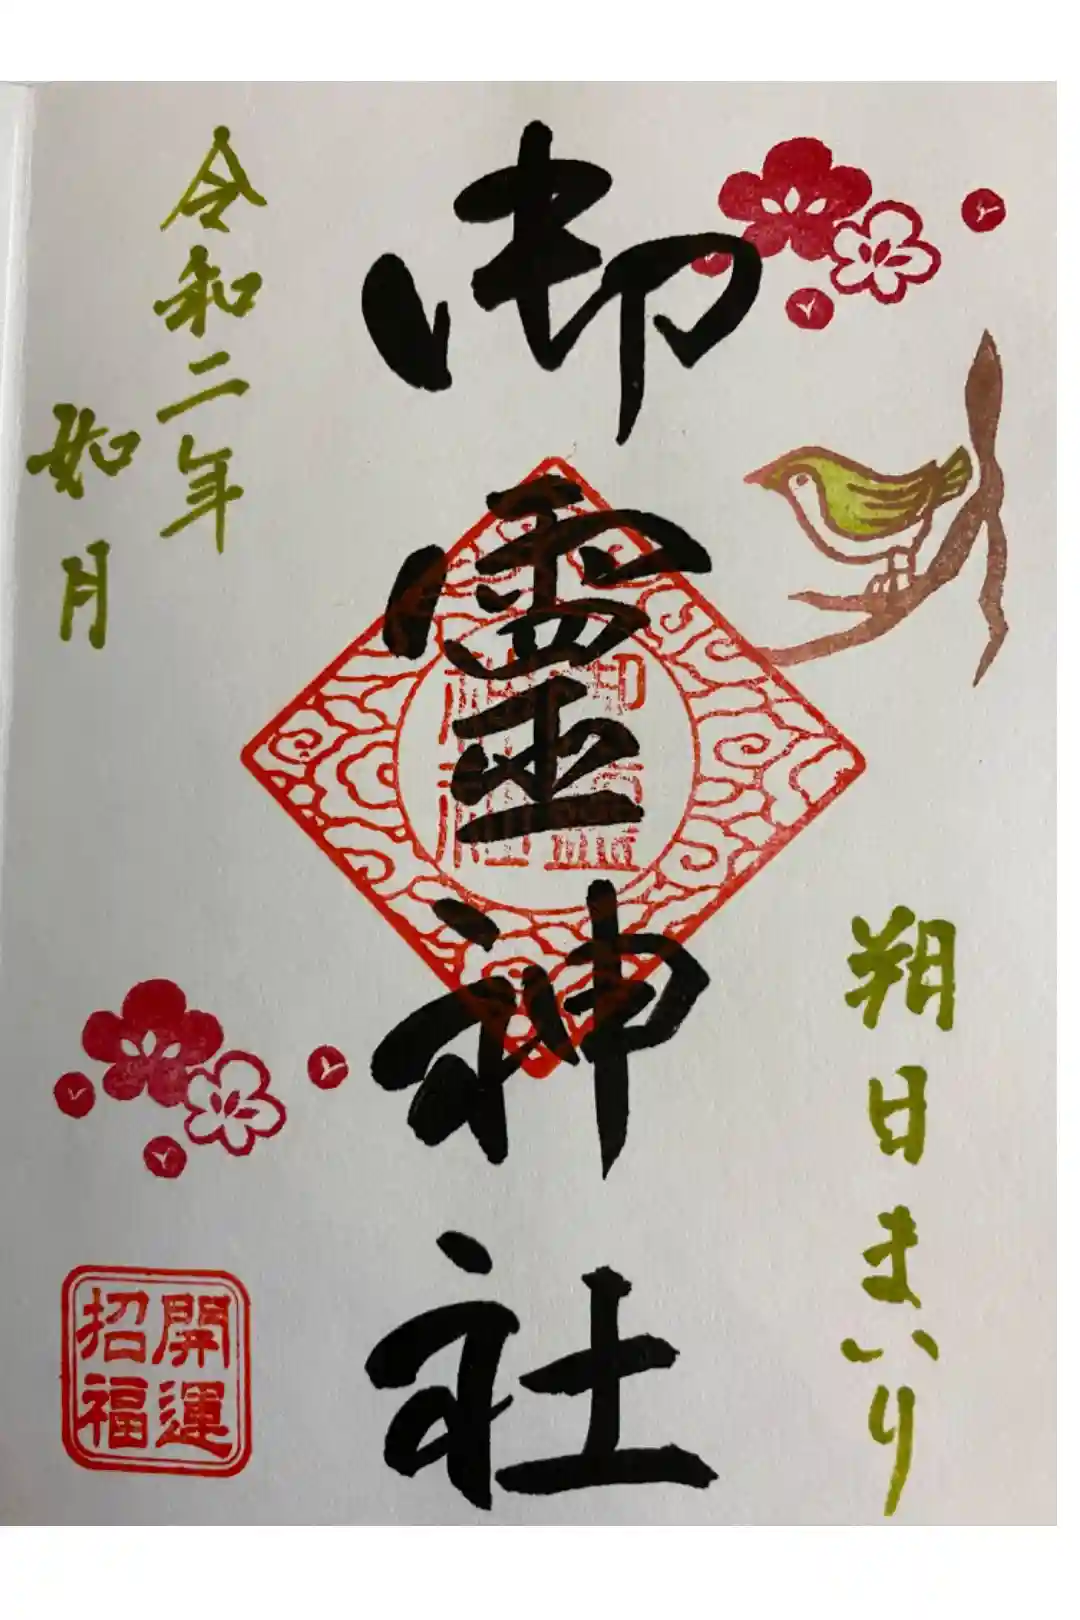 朔日まいり
御靈神社
令和二年
如月
開運
招福